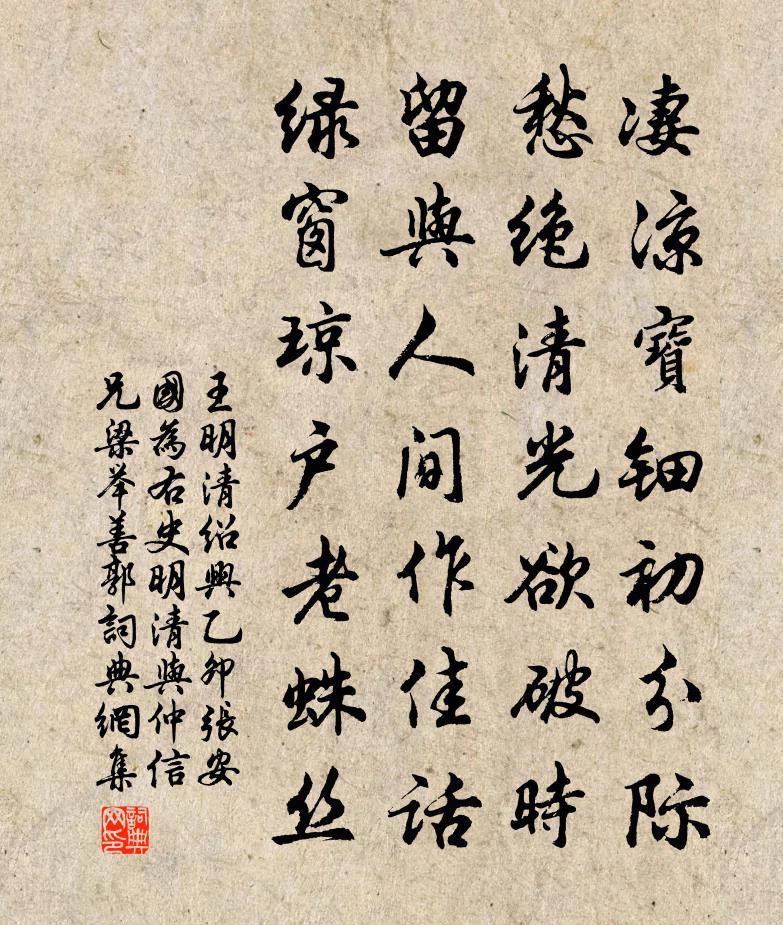 凄凉寶鈿初分际
愁絶清光欲破時
留與人间作佳话
绿窗琼户老蛛丝
王明清绍興乙卯張安
國為右史明清與仲信
兄梁举善郭詞典網集
詞典网印